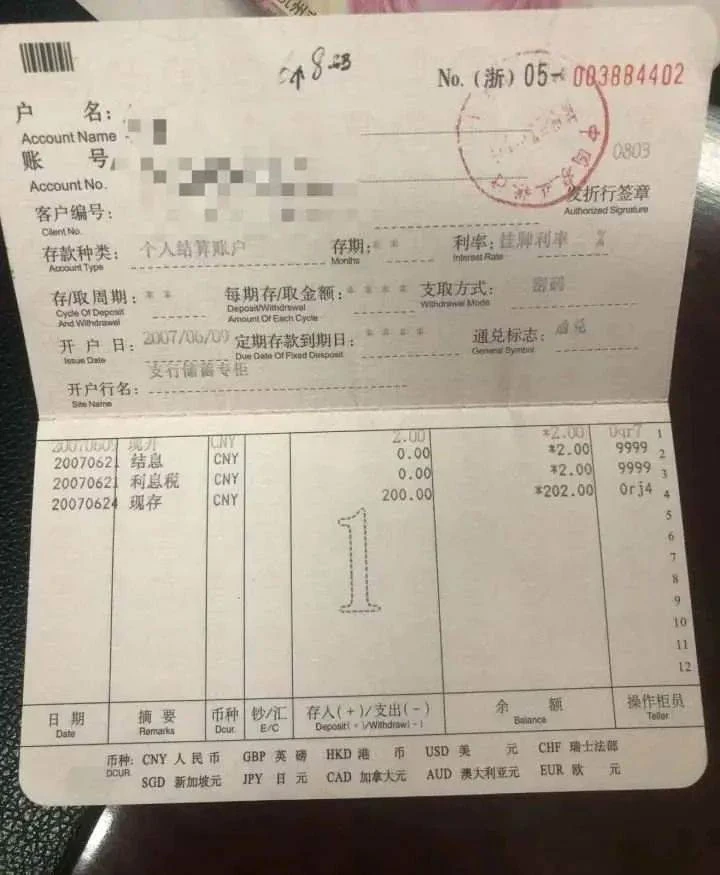 No.（浙）05-003884402
户 名：
Account Name
0803
账 号
Account No.
发折行签章
Authorized Signature
客户编号：
Client No.
存款种类： 个人结算账户 存期：** 利率：挂牌利率 %
Account Type Months Interest Rate
存/取周期：** 每期存/取金额：**** 支取方式： 密码
Cycle Of Deposit And Withdrawal Deposit/Withdrawal Amount Of Each Cycle Withdrawal Mode
开 户 日：2007/06/09 定期存款到期日：**** 通兑标志：通兑
Issue Date Due Date Of Fixed Desposit General Symbol
支行储蓄专柜
开户行名：
Site Name
20070609 现开 CNY 2.00 *2.00 1
20070621 结息 CNY 0.00 *2.00 9999 2
20070621 利息税 CNY 0.00 *2.00 9999 3
20070624 现存 CNY 200.00 *202.00 0rj4 4
5
6
7
8
9
10
11
12
1
日 期 摘 要 币种 钞/汇 存入(+)/支出(-) 余 额 操作柜员
Date Remarks Dcur. E/C Deposit(+)/Withdraw(-) Balance Teller
币种： CNY 人 民 币 GBP 英 磅 HKD 港 币 USD 美 元 CHF 瑞士法郎
DCUR SGD 新加坡元 JPY 日 元 CAD 加拿大元 AUD 澳大利亚元 EUR 欧 元